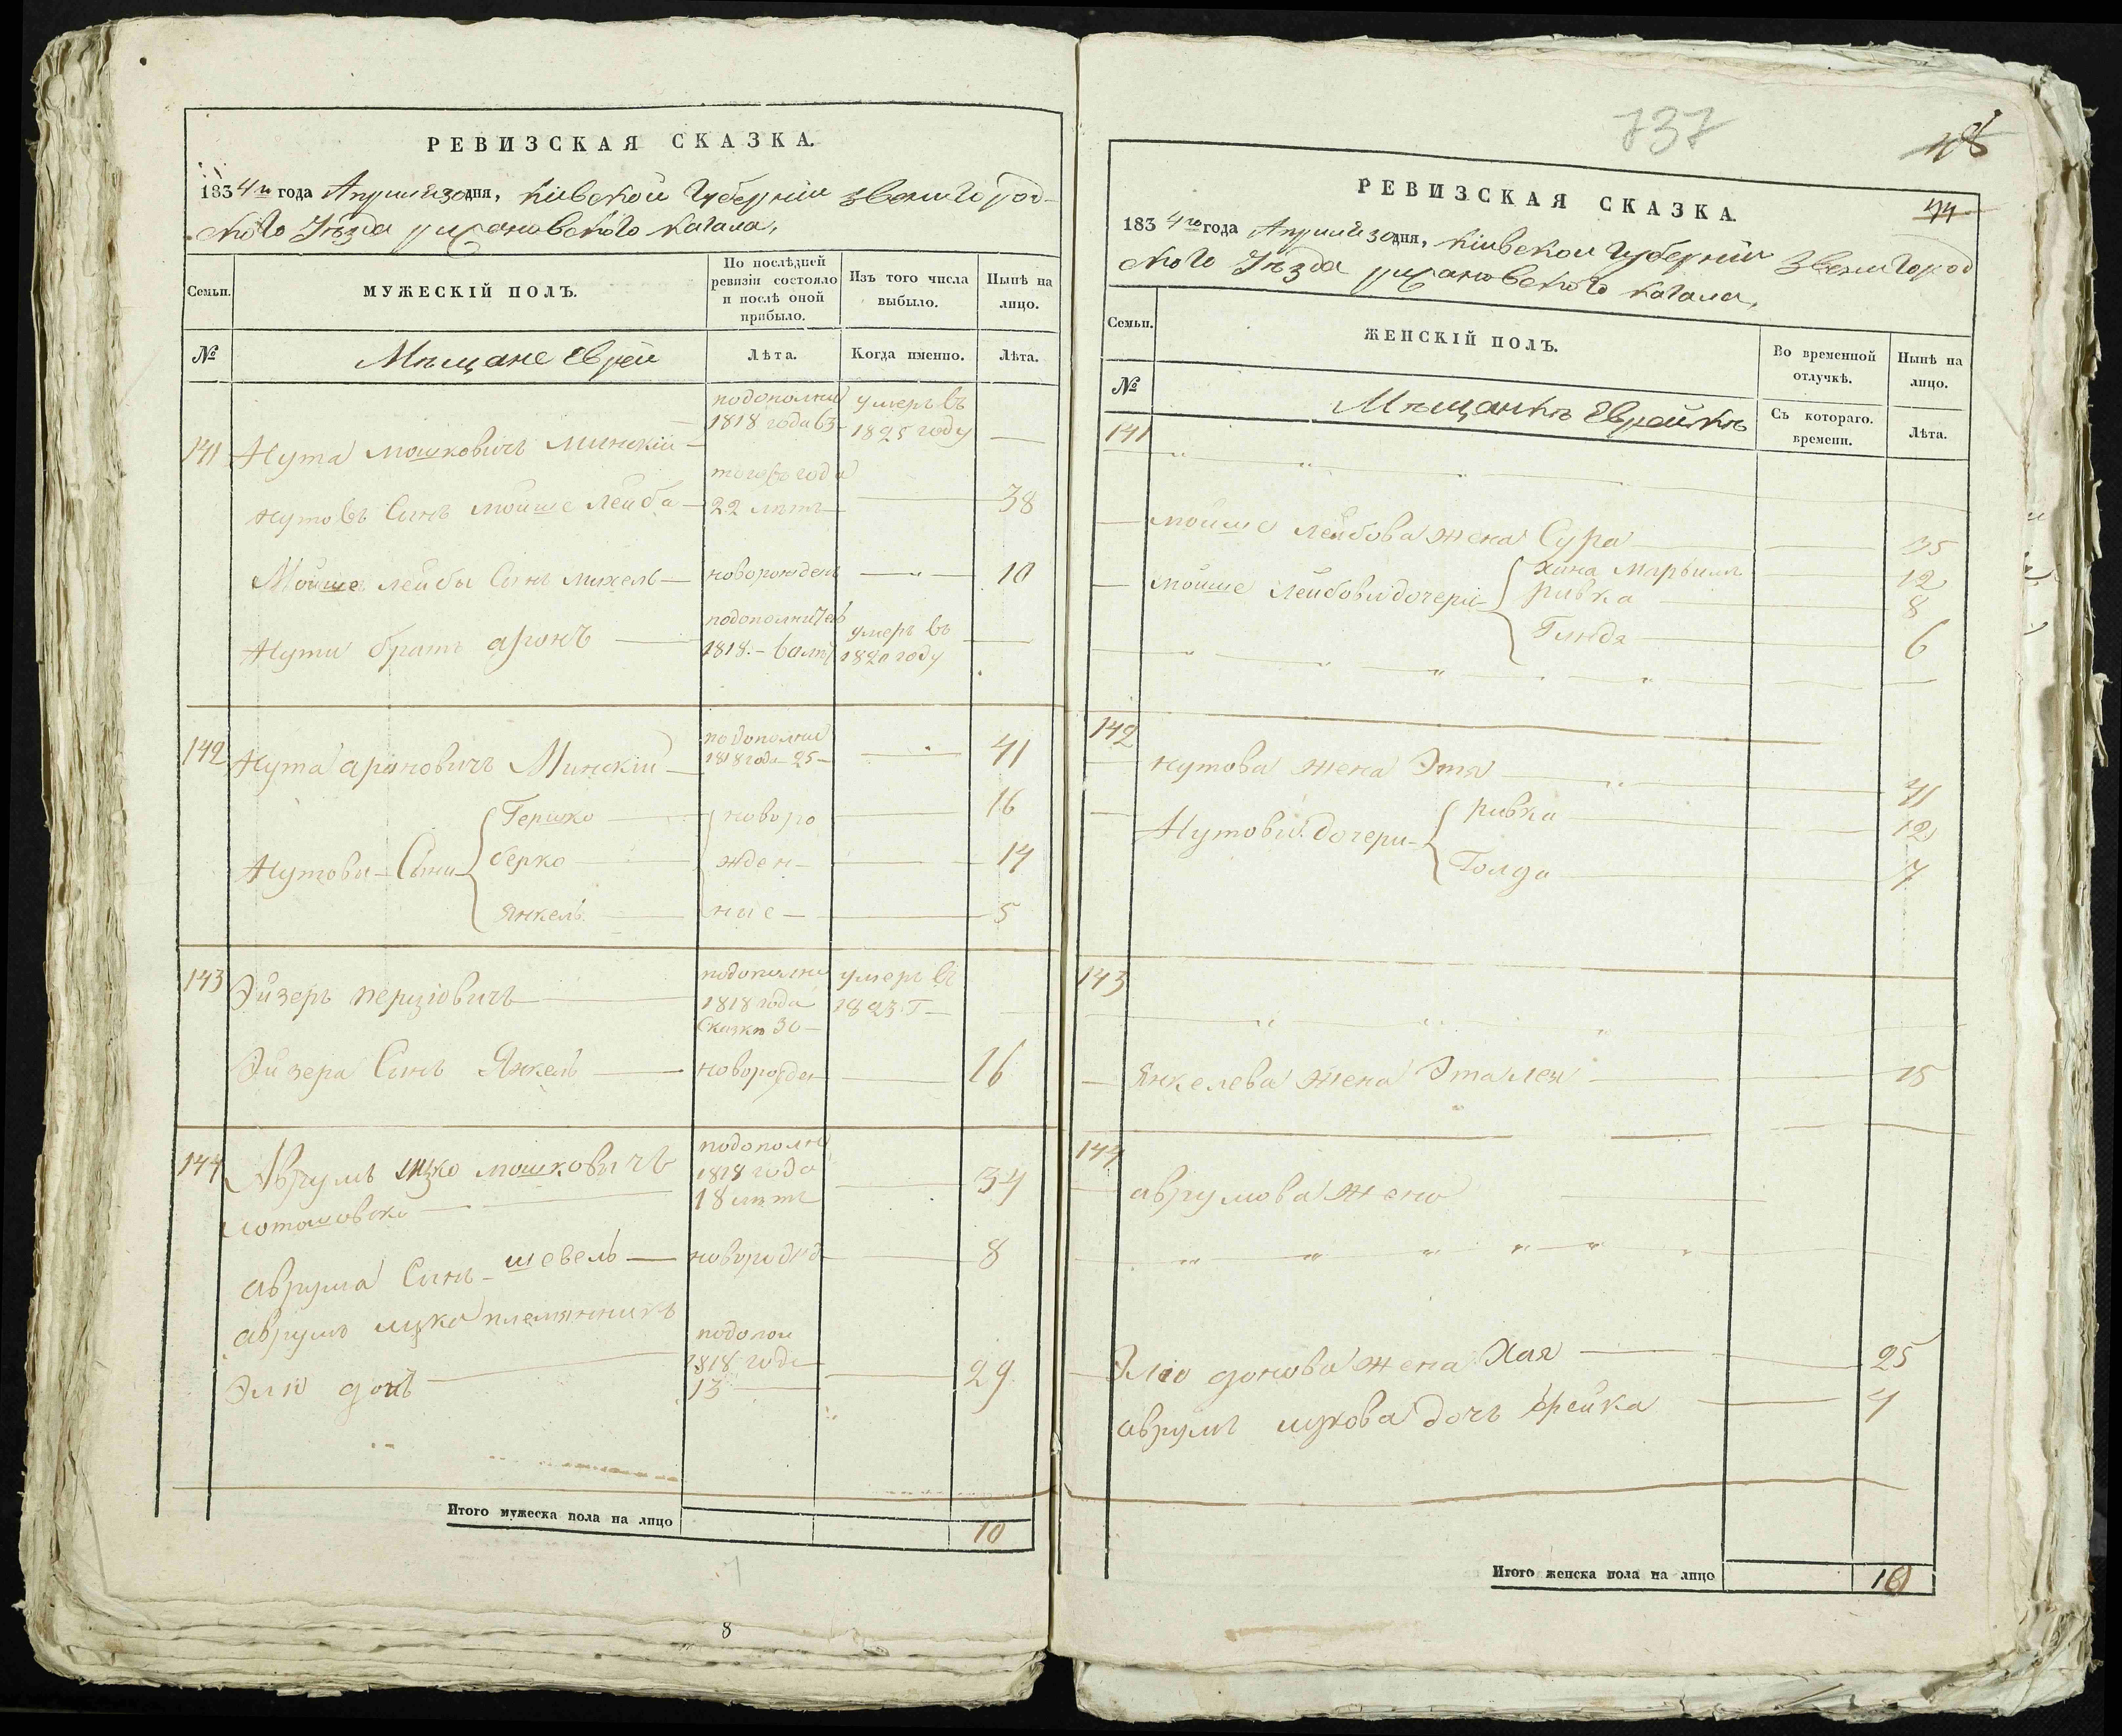 РЕВИЗСКАЯ СКАЗКА.
1834го года Априля 30 дня, Кіевской Губерніи Звенигород-
ского Уѣзда рижановского кагала,
Семьи.
МУЖЕСКІЙ ПОЛЪ.
По послѣдней ревизіи состояло и послѣ оной прибыло.
Изъ того числа выбыло.
Нынѣ на лицо.
№
Мѣщане Евреи
Лѣта.
Когда именно.
Лѣта.
подополни умеръ въ
1818 года 63 1825 году
141 Нута Мошковичъ Минскій —
того года
Нутовъ Синъ Мойше Лейба 22 лѣтъ — 38
Мойше Лейбы Синъ Михель — новорожден — 10
подополни
Нути братъ аронъ — 1818 умеръ въ 1820 году —
подополни
142 Нута ароновичъ Минскій 1818 года 25 — 41
Нутови Сыни { Гершко — новоро — 16
берко — жден — 14
Янкель — ные — 5
подополни умеръ въ
143 Эйзеръ перціовичъ — 1818 года 1823 г —
Сказки 30 —
Эйзера Синъ Янкель — новорожден — 16
подополни
144 Аврумъ ицко мошковичъ 1818 года — 34
18 лѣтъ
аврума Синъ шевель — новорожд — 8
аврумъ ицка племянникъ
подопол
1818 года
Элю донъ — 13 — 29
Итого мужеска пола на лицо
10
8
737
44
РЕВИЗСКАЯ СКАЗКА.
1834го года Априля 30 дня, Кіевской Губерніи Звенигород
ского Уѣзда рижановского кагала,
Семьи.
ЖЕНСКІЙ ПОЛЪ.
Во временной отлучкѣ.
Нынѣ на лицо.
№
Мѣщанкѣ Еврейкѣ
Съ котораго. времени.
Лѣта.
141
— Мойше Лейбова жена Сура — 35
— Мойше Лейбови дочери { Хина Марьям — 12
ривка — 8
Гиндя — 6
142
— нутова жена Этя — 41
— Нутови дочери { ривка — 12
Голда — 7
143
— Янкелева жена Эталея — 15
144
— аврумова жена
— Элю донова жена Хая — 25
аврумъ ицкова дочъ фрейка — 4
Итого женска пола на лицо
10